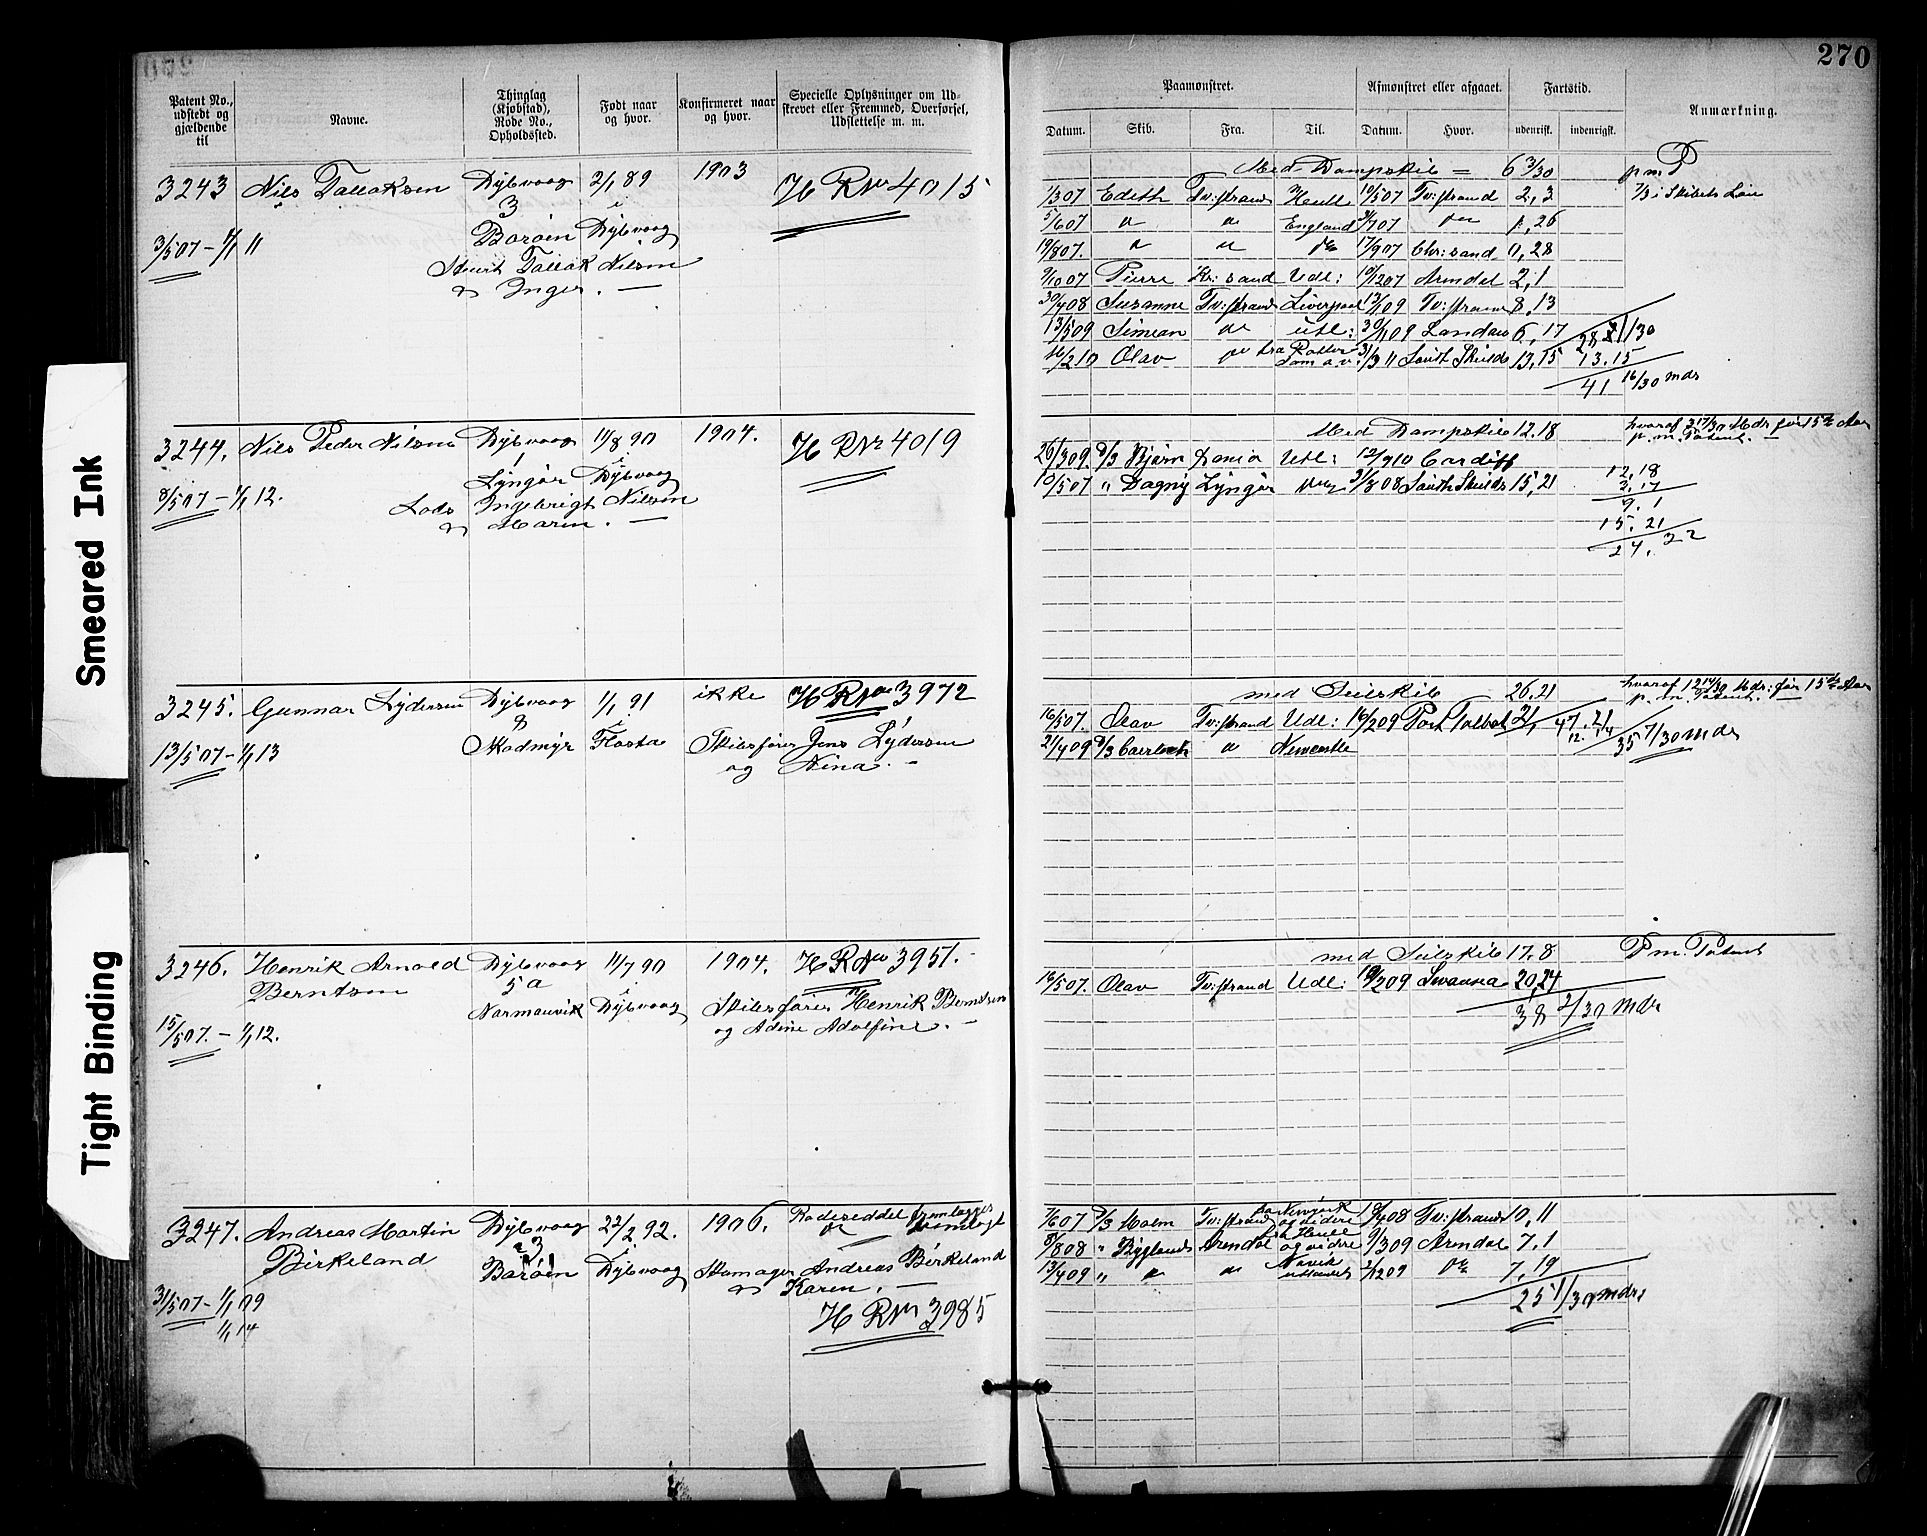 270
Smeared Ink
Tight Binding
Patent No., udstedt og gjældende til
Navne.
Thinglag (Kjøbstad), Rode No., Opholdssted.
Født naar og hvor.
Konfirmeret naar og hvor.
Specielle Oplysninger om Udskrevet eller Fremmed, Overførsel, Udslettelse m. m.
Paamønstret.
Afmønstret eller afgaaet.
Fartstid.
Anmærkning.
Datum.
Skib.
Fra.
Til.
Datum.
Hvor.
udenrigsk.
indenrigsk.
3243 Nils Tallaksen Dybvaag 2/1 89 1903 H R Nr 4015
3 i
3/5 07 – 1/1 11 Borøen Dybvaag
Tallak Nilsen
& Inger. —
Med Dampskib = 6 3/30
Edith Tv:strand Hull 10/5 07 Tv:strand 2,3
5/6 07 " " England 3/7 07 1,26
19/8 07. " " 17/9 07 Chr:sand 0,28
9/10 07 Pierre Kr:sand Udl: 10/12 07 Arendal 2,1
30/4 08 Suzanne Tv:strand Liverpool 13/1 09 Tv:strand 8,13
13/5 09 Simean utl: 30/11 09 London 6,17
Olav 31/3 11 South Shields 13,15 13.15
41 16/30 mdr
3244. Nils Peder Nilsen Dybvaag 11/8 90 1904. H R Nr 4019
1 i
8/5 07 – 1/1 12. Lyngør Dybvaag
Lods Ingebrigt Nilsen
& Maren. —
Med Dampskib 12.18 hvoraf 3 17/30 Mdr før 15de Aar
p. m. Patent. —
26/3 09. D/S Bjørn Utl: 12/9 10 Cardiff 12,18
10/5 07 " Dagny Lyngør 31/8 08 South Shields 15,21 3,17
9.1
15.21
24.22
3245. Gunnar Lydersen Dybvaag 1/1 91 ikke H R Nr 3972
8 i
13/5 07 – 1/1 13 Flosta Skibsfører Jens Lydersen
og Nina. —
med Seilskib 26,21 hvoraf 12 14/30 Mdr: før 15de Aar
p. m. Patent.
16/5 07. Olav Tv:strand Udl: 16/2 09 Port Talbot 21, 47.21
21/4 09 D/S " Newcastle 35 7/30 mdr
3246. Henrik Arnold Dybvaag 11/7 90 1904. H R Nr 3951. —
Berntsen 5a i
Narmanvik Dybvaag Skibsfører Henrik Berntsen
15/5 07. – 1/1 12. og Adine Adolfine. —
med Seilskib 17.8 P m. Patent
16/5 07. Olav Tv:strand Udl: 18/2 09 Swansea 20,24
38 2/30 mdr
3247. Andreas Martin Dybvaag 22/2 92. 1906. Rodeseddel fremlagges
Birkeland 3 i
Borøen Dybvaag Andreas Birkeland
31/5 07 – 1/1 09 & Karen. —
1/1 14 H R Nr 3985
7/6 07 D/S Holm Tv:strand Newyork og videre 18/4 08 Tv:strand 10,11
8/8 08 " Bygland Arendal Hull og videre 9/3 09 Arendal 7,1
13/4 09 " " " Narvik 2/12 09 7,19
25 1/30 mdr